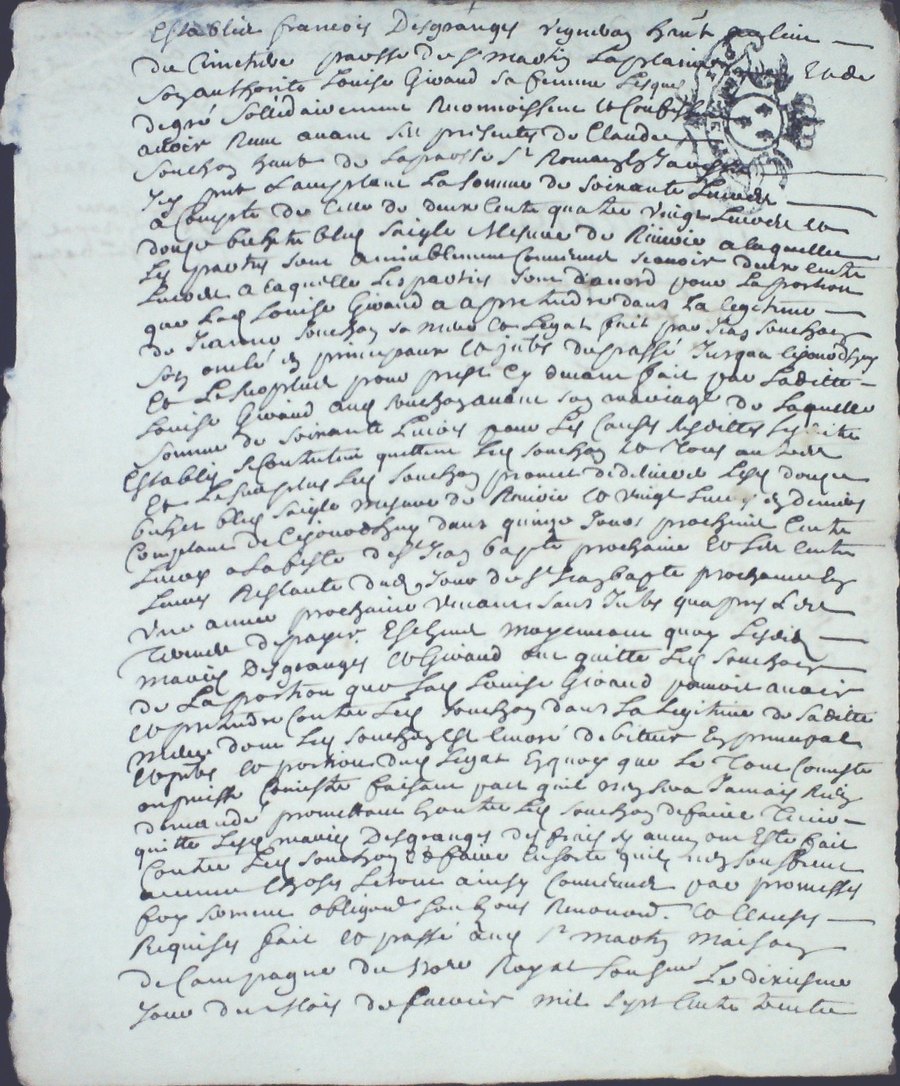 Establis francois Desgranges vigneron hant au lieu
du Cimetiere parosse de st martin Laplaine Et de
Son authorité Louise Givaud sa femme Lesque
de gré Solidairement Reconnoissent et Confes
avoir Receu avant Ses presentes de Claude
Souchon hant de Laparosse st Romain En Jarest
Icy pnt Lacceptant La somme de Soixante Livres
a Compte de Celle de deux Cents quatre vingt Livres et
douze bichets bled Seigle Mesure de Rivoire a laquelle
Les parties Sont amiablement Convenues scavoir deux Cents
Livres a laquelle Les parties Sont d'acord pour La portion
que Lad Louise Givaud a a prethendre dans La legitime
de Jeanne Souchon sa mere et Legat fait par Jean Souchon
Son oncle En principaux et jntts du passé Jusqua Cejourdhuy
Et Le Surplus pour prest Cy devant fait par Laditte
Louise Givaud aud Souchon avant Son mariage de Laquelle
Somme de Soixante Livres pour Les Causes Susdittes Lesdits
Establis Se Contentent quittent Led Souchon et
Et Le Surplus Led Souchon promet de delivrer Lesd douze
bichet bled Seigle mesure de Rivoire et vingt Livres En deniers
Comptant de Cejourdhuy dans quinze Jours prochains Cents
Livres a La feste de st Jean bapte prochaine et Les Cents
Livres Restante dud Jour de st Jean bapte prochaine En
Une année prochaine venant Sans Jntts qu'apres
Terme de payer Escheu moyennant quoy Lesdits
mariés Desgranges et Givaud ont quitté Led Souchon
de La portion que Lad Louise Givaud pouvoit avoir
et prethendre Contre Led Souchon dans La Legitime de Saditte
mere dont Led Souchon Est Encore debiteur En principal
et jntts et portion dud Legat En quoy que Le Tout Consiste
ou puisse Consister faisant pact quil n'en sera Jamais Rien
demandé promettant Led Souchon de faire Tenir
quitte Lesd mariés Desgranges des frais Si aucun ont Esté fait
Contre Led Souchon et faire En sorte quils n'en Souffrent
aucune Choses Le tout ainsy Convenu par promesses
foy serment obligaons Renonaons et Clauses
Requises fait et passé aud st martin maison
de Campagne du Nore Royal Soussigné Le dixiesme
Jour du Mois de fevrier mil Sept Cents Trente